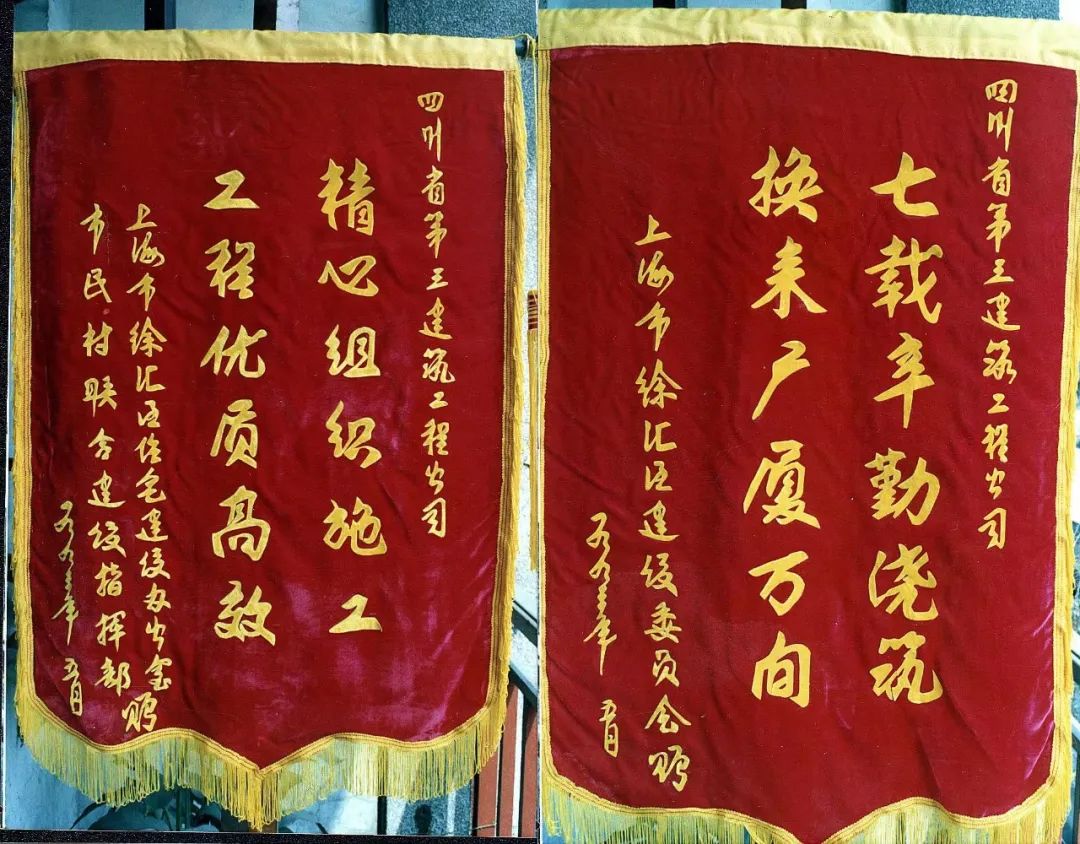 四川省第三建筑工程公司
精心组织施工
工程优质高效
上海市徐汇区住宅建设办公室赠
市民村联合建设指挥部
一九九三年 五月
四川省第三建筑工程公司
七载辛勤浇筑
换来广厦万间
上海市徐汇区建设委员会赠
一九九三年 五月